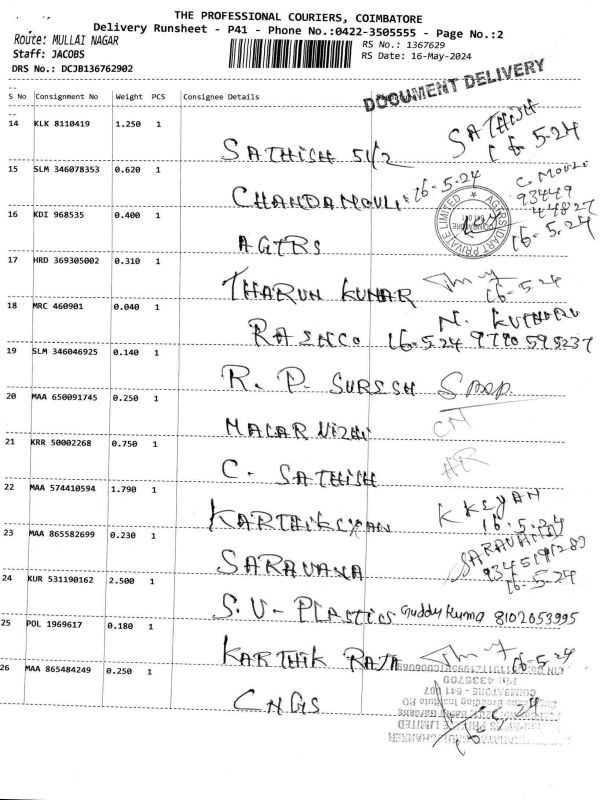 THE PROFESSIONAL COURIERS, COIMBATORE
Delivery Runsheet - P41 - Phone No.:0422-3505555 - Page No.:2
Route: MULLAI NAGAR
RS No.: 1367629
Staff: JACOBS
RS Date: 16-May-2024
DRS No.: DCJB136762902
DOCUMENT DELIVERY
S No Consignment No Weight PCS Consignee Details
14 KLK 8110419 1.250 1
SATHISH 51/2 SATHISH
16-5-24
15 SLM 346078353 0.620 1
CHANDAMOULI 16-5-24 C. MOULI
93449
44827
16 KDI 968535 0.400 1
AGTRS 16-5.24
PRIVATE LIMITED
17 HRD 369305002 0.310 1
THARUN KUMAR 16-5-24
18 MRC 460901 0.040 1
RAENCO 16-5.24 9790595237
19 SLM 346046925 0.140 1
R. P. SURESH
20 MAA 650091745 0.250 1
MALARVIZHI CN
21 KRR 50002268 0.750 1
C. SATHISH HR
22 MAA 574410594 1.790 1
KARTHIKEYAN K KEYAN
16-5-24
23 MAA 865582699 0.230 1
SARAVANA SARAVANA
16-5-24
24 KUR 531190162 2.500 1
S.V-PLASTICS Guddy Kuma 8102053995
25 POL 1969617 0.180 1
KARTHIK RAJA 16-5-24
26 MAA 865484249 0.250 1
CNGS
Ph: 4335700
COIMBATORE - 641 007